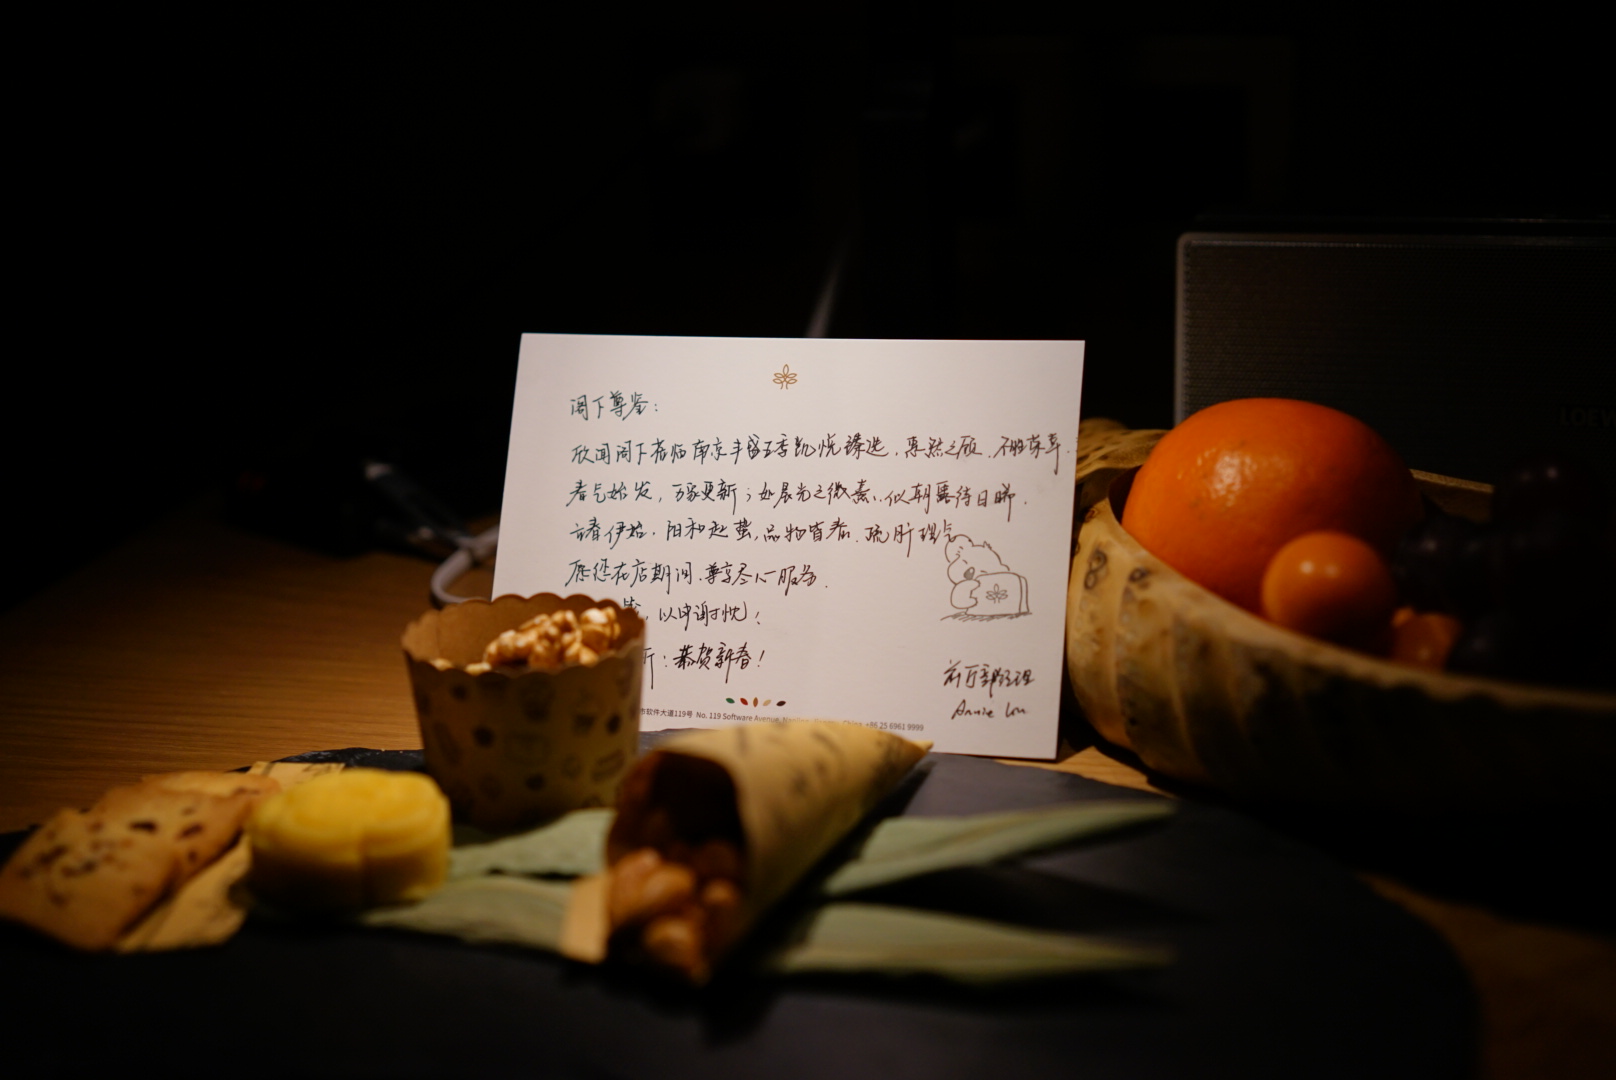 阁下尊鉴：
欣闻阁下莅临南京丰盛五季凯悦臻选，惠然之顾，不胜荣幸。
春气始发，万象更新；如晨光之微熹，似朝露待日晞，
立春伊始，阳和起蛰，品物皆春，疏肝理气
愿您在店期间，尊享尽心服务。
，以申谢忱！
：恭贺新春！
前厅部经理
Annie Lou
市软件大道119号 No. 119 Software Avenue, China +86 25 6961 9999
LOEW